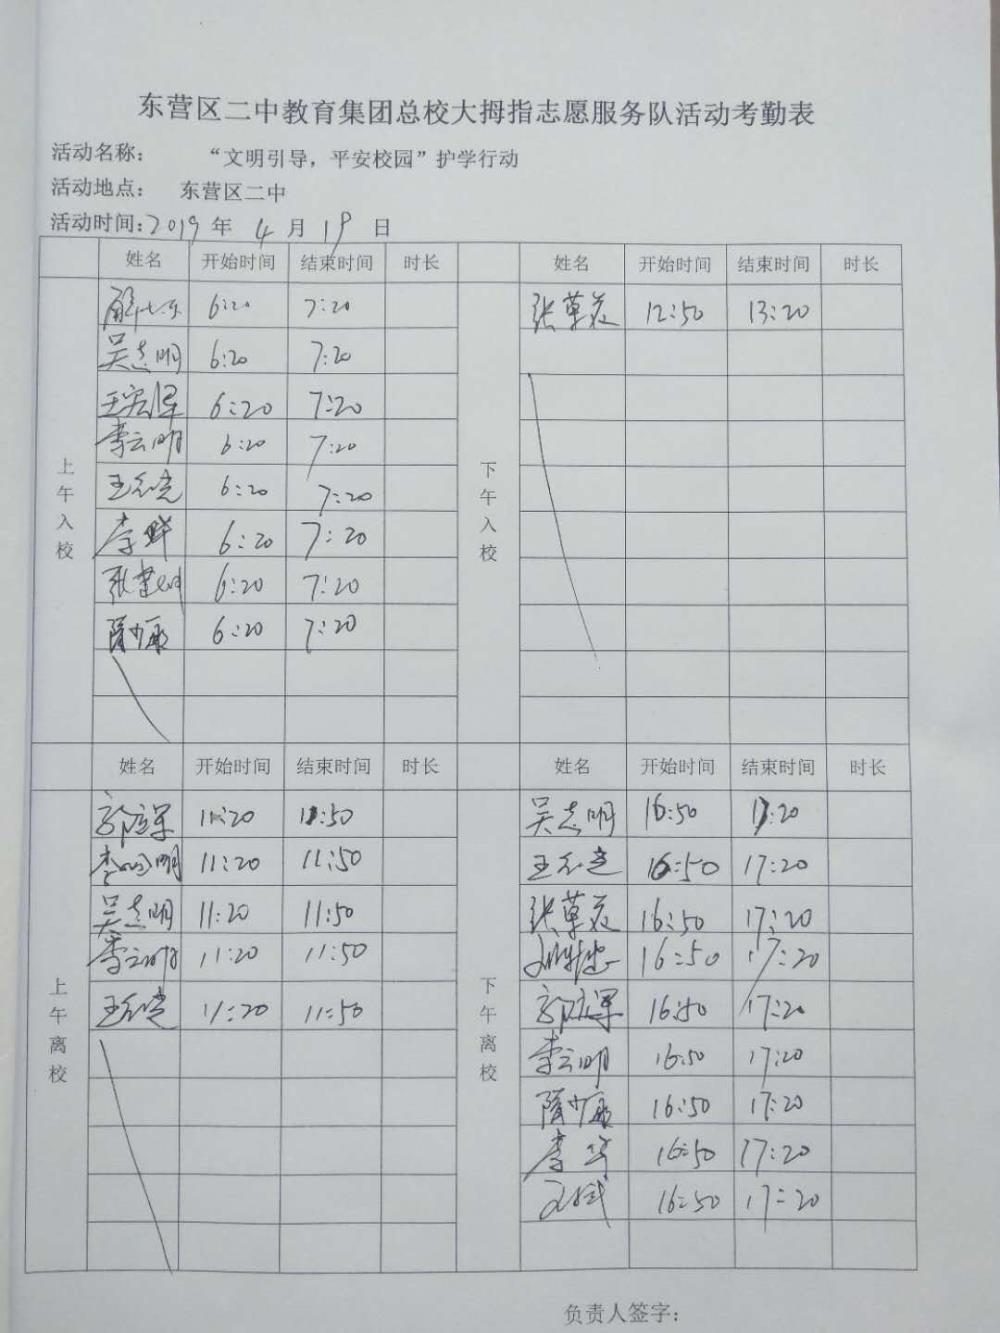 东营区二中教育集团总校大拇指志愿服务队活动考勤表
活动名称： “文明引导，平安校园”护学行动
活动地点： 东营区二中
活动时间：2019 年 4 月 19 日
姓名 开始时间 结束时间 时长 姓名 开始时间 结束时间 时长
上午入校
下午入校
6:20 7:20 张草 12:50 13:20
吴志明 6:20 7:20
王宏 6:20 7:20
李云明 6:20 7:20
王 6:20 7:20
李 6:20 7:20
张 6:20 7:20
隋少 6:20 7:20
姓名 开始时间 结束时间 时长 姓名 开始时间 结束时间 时长
上午离校
下午离校
郭 军 11:20 11:50 吴志明 16:50 17:20
李 明 11:20 11:50 王 16:50 17:20
吴志明 11:20 11:50 张草 16:50 17:20
李云明 11:20 11:50 16:50 17:20
王 11:20 11:50 郭 军 16:50 17:20
李云明 16:50 17:20
隋少 16:50 17:20
李华 16:50 17:20
王斌 16:50 17:20
负责人签字：